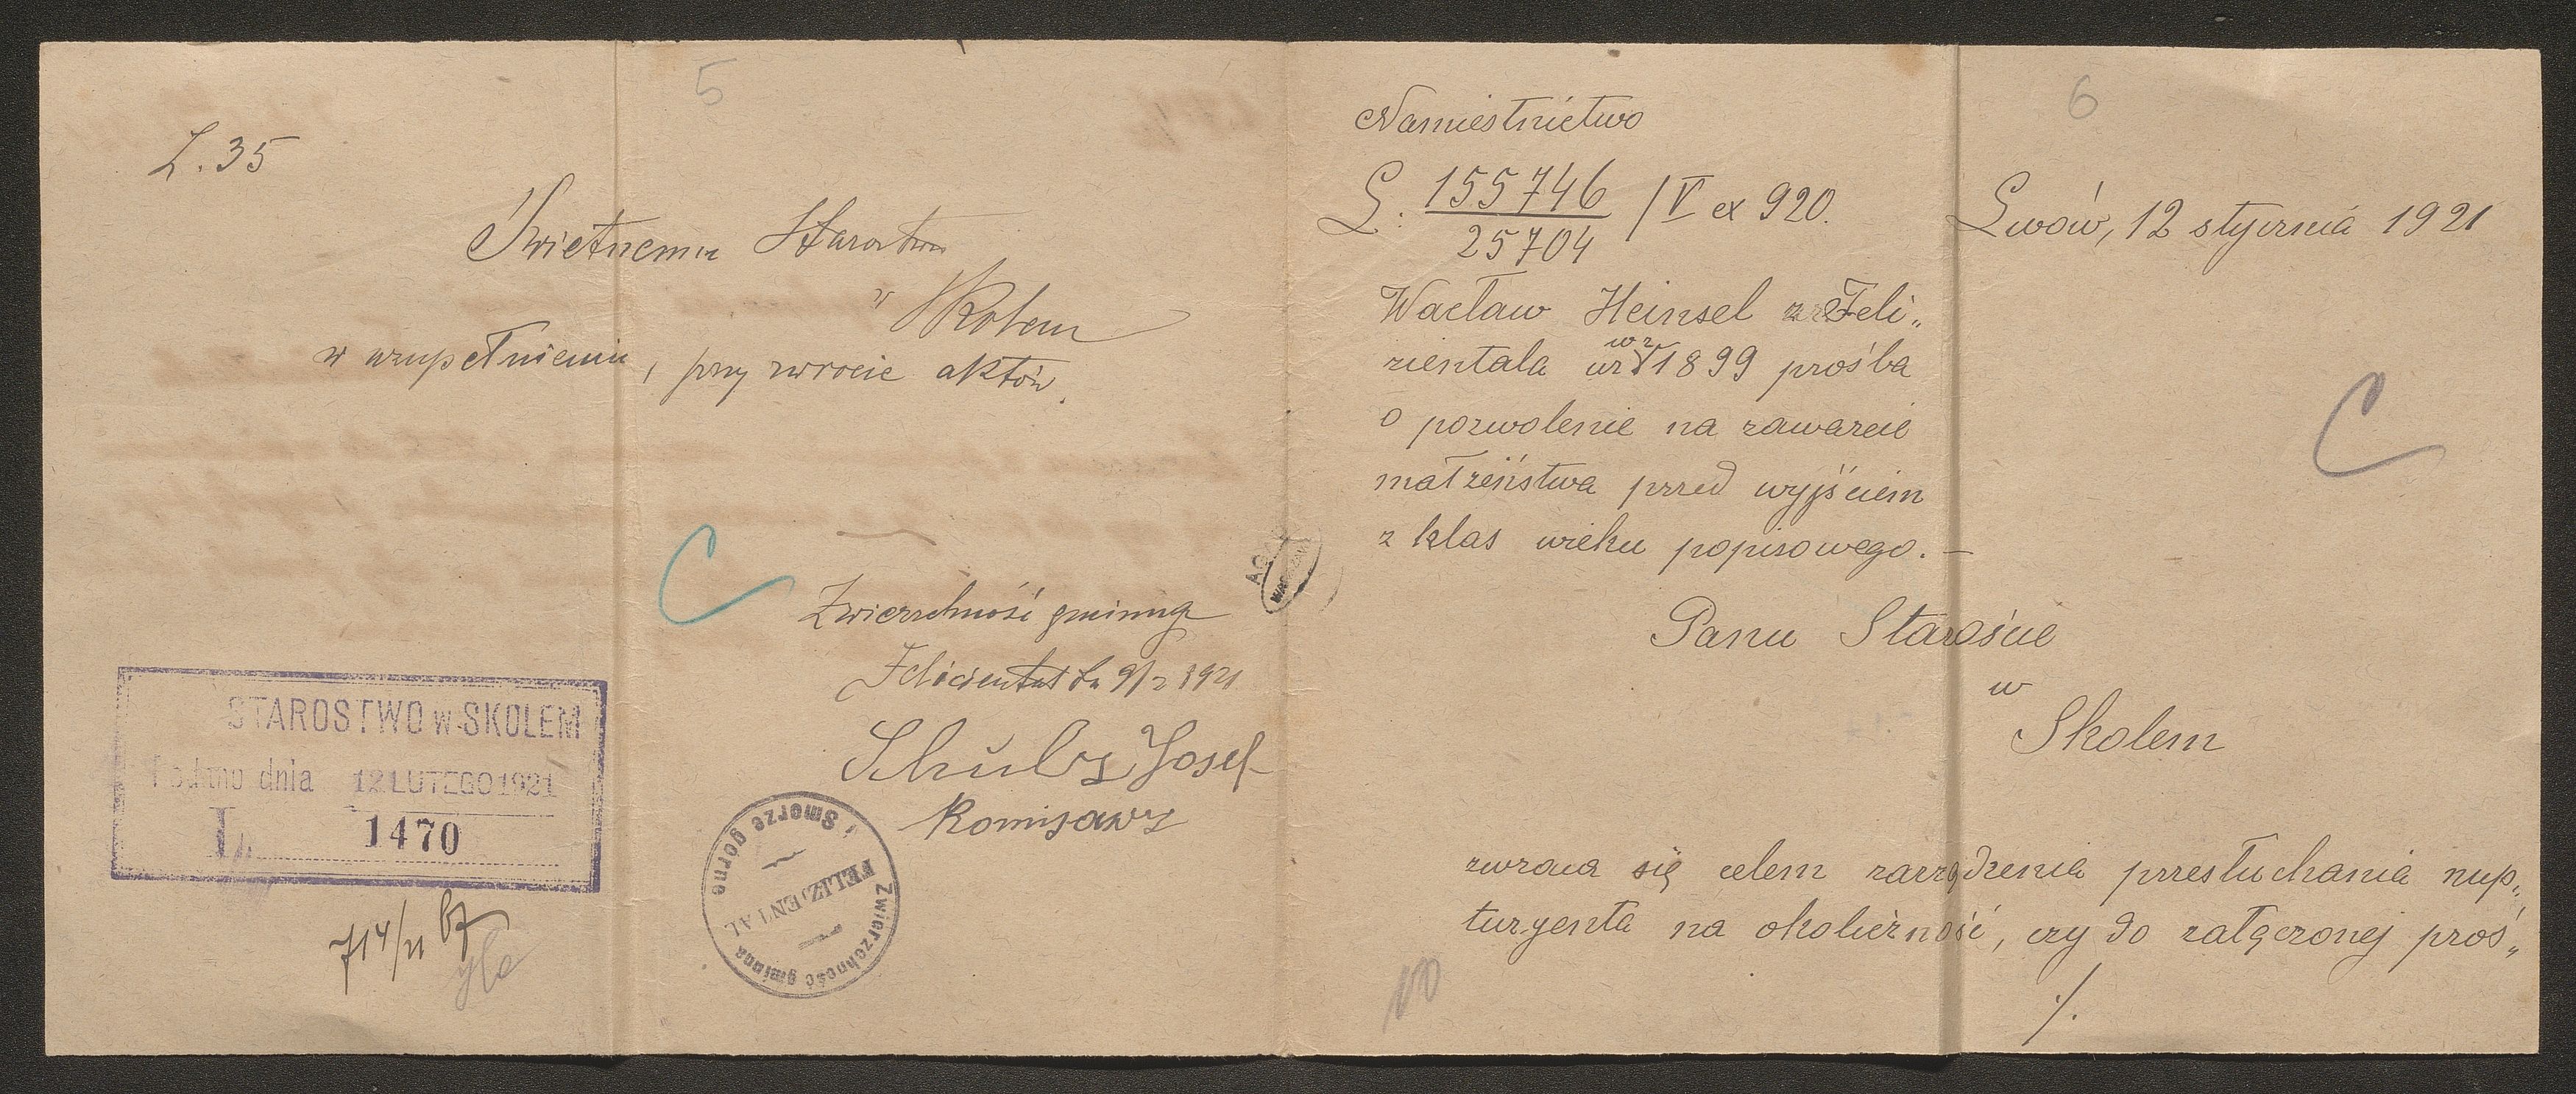 5
L. 35
Świetnemu Starostwu
w Skolem
w uzupełnieniu, przy zwrocie aktów.
Zwierzchność gminna
Feliciental dn 9/2 1921
Schulz Josef
Komisarz
Zwierzchność gminna
FELIZIENTAL
Smorze górne
STAROSTWO w SKOLEM
Podano dnia 12 LUTEGO 1921
L. 1470
714/21
6
Namiestnictwo
L. 155746 / V ex 920.
25704
Lwów, 12 stycznia 1921
Wacław Heinsel z Feli„
zientala ur w r 1899 prośba
o pozwolenie na zawarcie
małżeństwa przed wyjściem
z klas wieku popisowego. —
Panu Staroście
w
Skolem
zwraca się celem zarządzenia przesłuchania nup„
turyenta na okoliczność, czy do załączonej proś„
./.